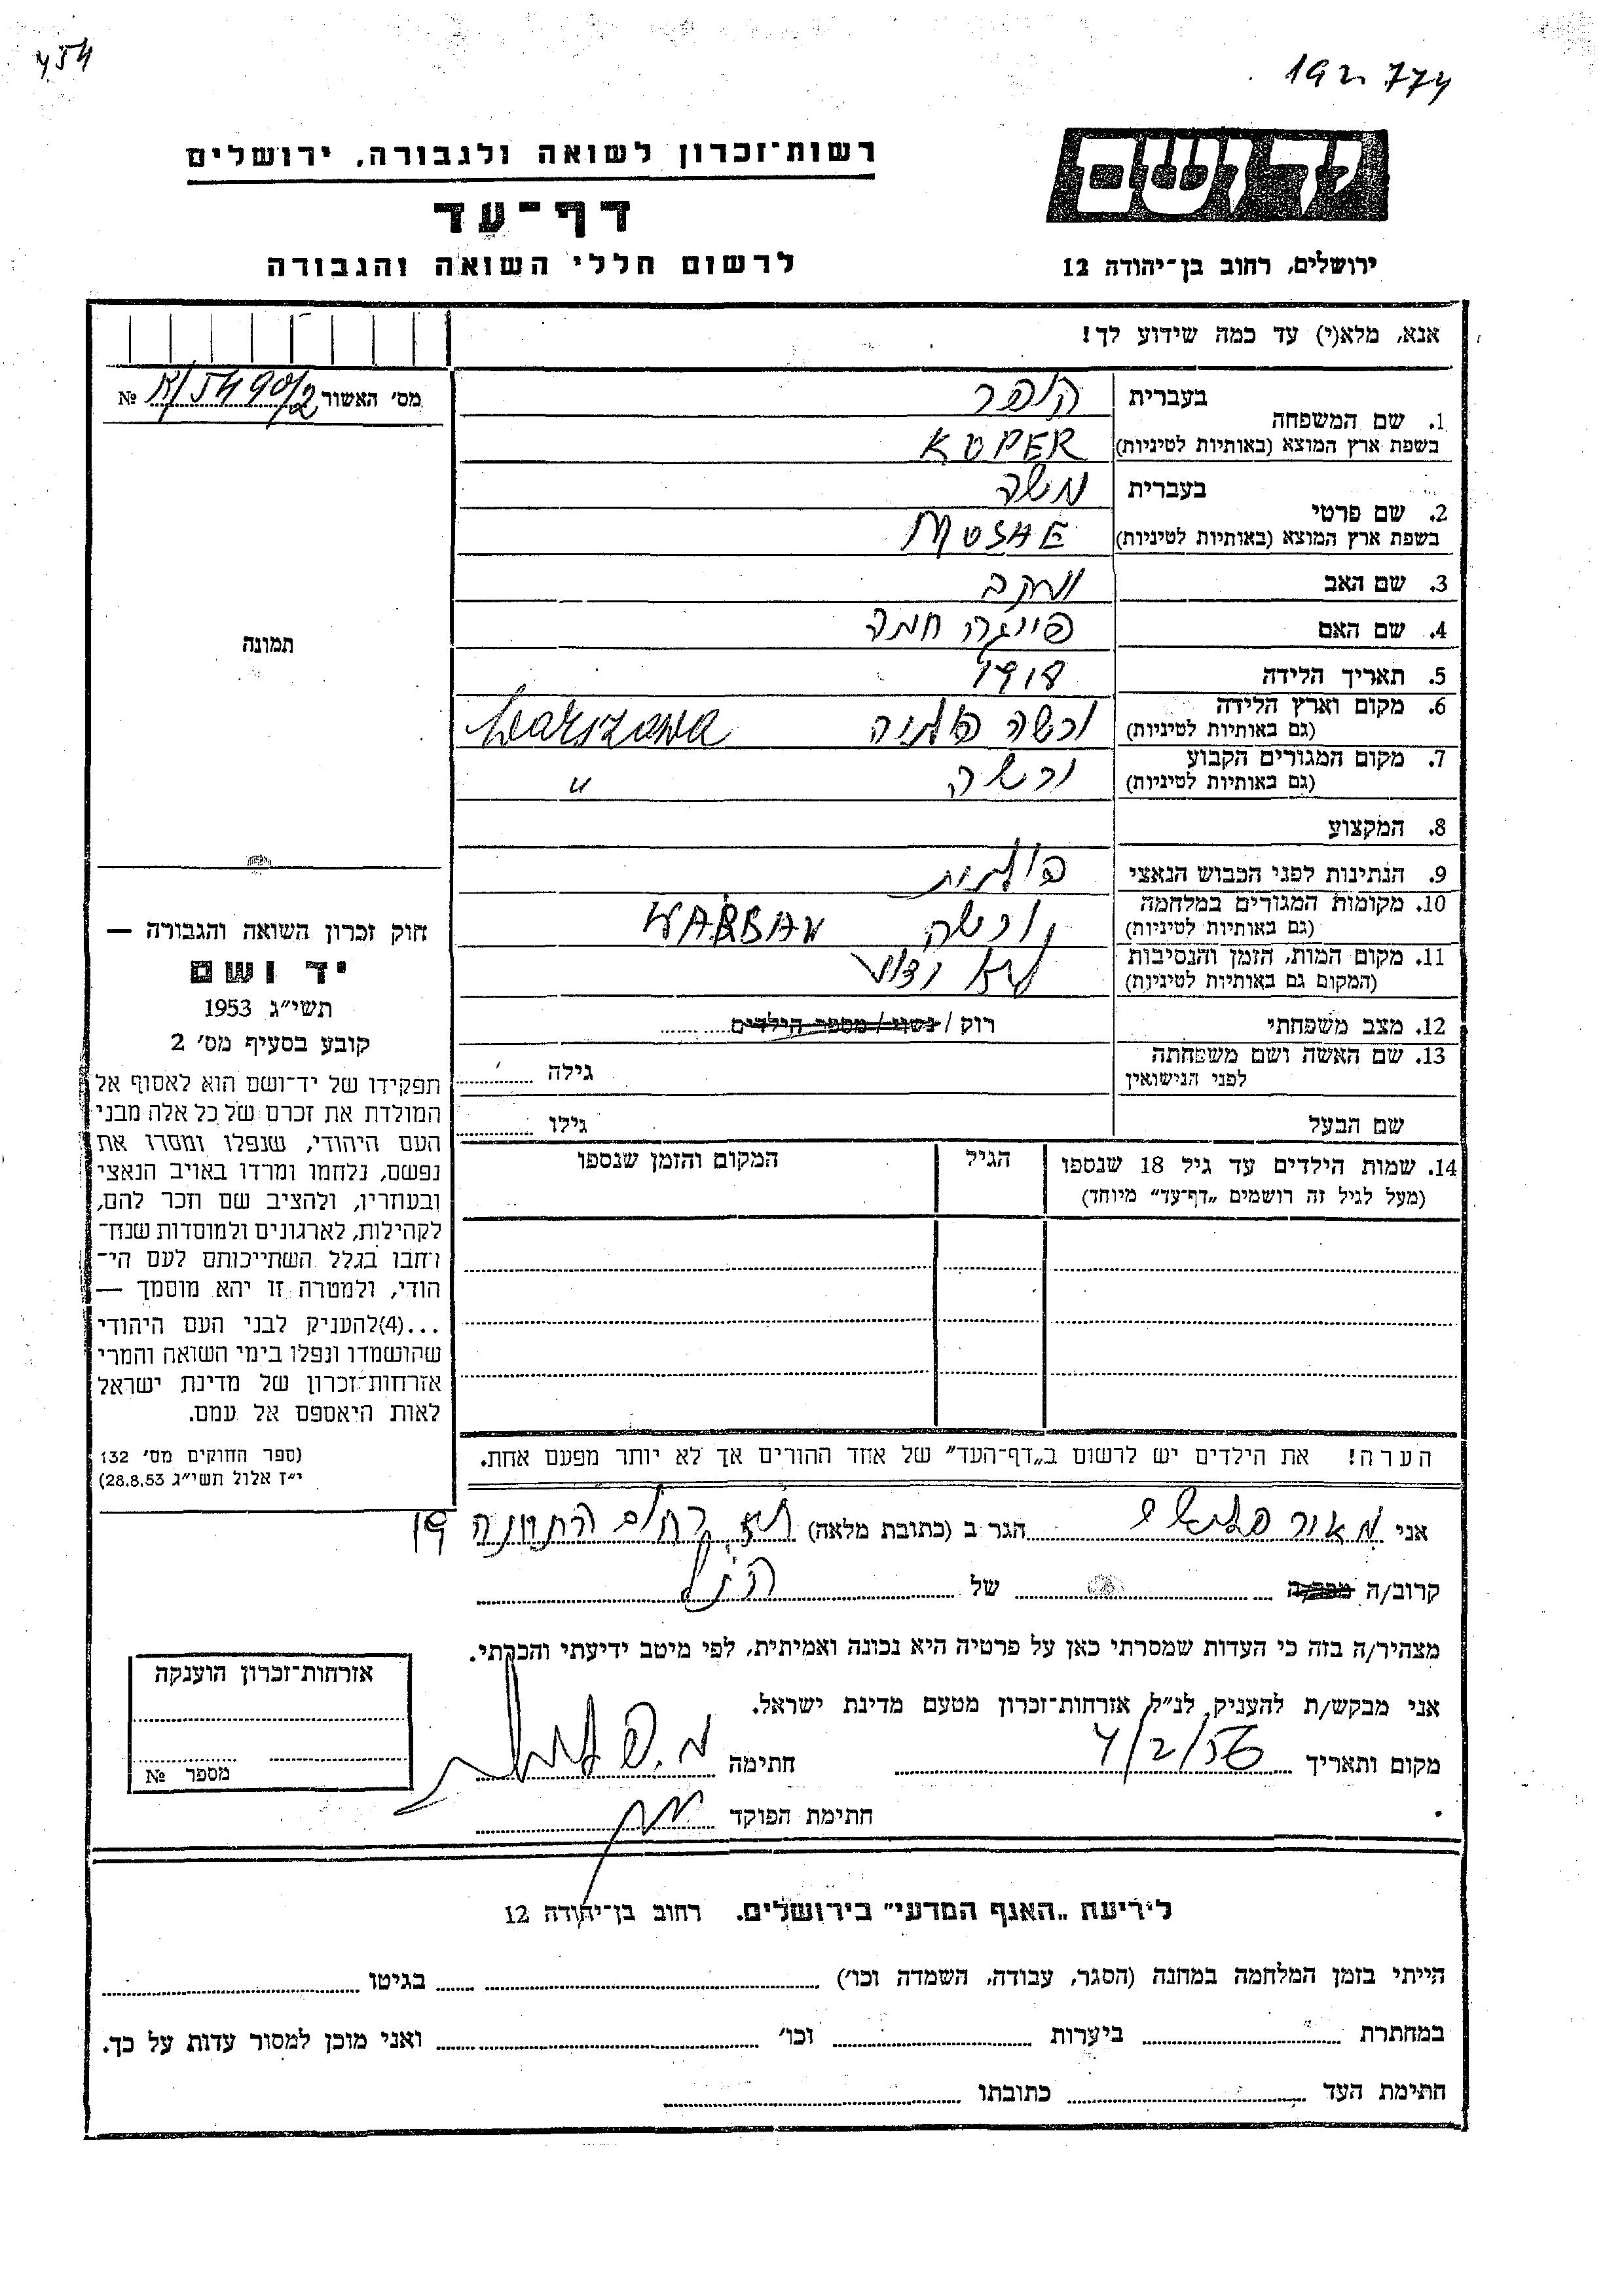 454
192. 774
רשות־זכרון לשואה ולגבורה, ירושלים
יד ושם
דף־עד
לרשום חללי השואה והגבורה
ירושלים, רחוב בן־יהודה 12
אנא, מלא(י) עד כמה שידוע לך!
מס׳ האשור K/5490/2 №
1. שם המשפחה
בעברית קופר
בשפת ארץ המוצא (באותיות לטיניות) KUPER
2. שם פרטי
בעברית משה
בשפת ארץ המוצא (באותיות לטיניות) MOSHE
3. שם האב יעקב
4. שם האם פייגה
5. תאריך הלידה 1918
6. מקום וארץ הלידה
(גם באותיות לטיניות) ורשה פולניה Warszawa
7. מקום המגורים הקבוע
(גם באותיות לטיניות) ורשה "
8. המקצוע
9. הנתינות לפני הכבוש הנאצי פולנית
10. מקומות המגורים במלחמה
(גם באותיות לטיניות) ורשה
11. מקום המות, הזמן והנסיבות
(המקום גם באותיות לטיניות) לא ידוע
12. מצב משפחתי רוק / נשוי / מספר הילדים
13. שם האשה ושם משפחתה
לפני הנישואין גילה
שם הבעל גילו
14. שמות הילדים עד גיל 18 שנספו
(מעל לגיל זה רושמים „דף־עד” מיוחד)
הגיל
המקום והזמן שנספו
הערה! את הילדים יש לרשום ב„דף־העד” של אחד ההורים אך לא יותר מפעם אחת.
תמונה
חוק זכרון השואה והגבורה —
יד ושם
תשי״ג 1953
קובע בסעיף מס׳ 2
תפקידו של יד־ושם הוא לאסוף אל
המולדת את זכרם של כל אלה מבני
העם היהודי, שנפלו ומסרו את
נפשם, נלחמו ומרדו באויב הנאצי
ובעוזריו, ולהציב שם וזכר להם,
לקהילות, לארגונים ולמוסדות שנח־
רבו בגלל השתייכותם לעם הי־
הודי, ולמטרה זו יהא מוסמך —
...(4)להעניק לבני העם היהודי
שהושמדו ונפלו בימי השואה והמרי
אזרחות־זכרון של מדינת ישראל
לאות היאספם אל עמם.
(ספר החוקים מס׳ 132
י״ז אלול תשי״ג 28.8.53)
אני מאור הגר ב (כתובת מלאה) 19
קרוב/ה מכר/ה של הנ״ל
מצהיר/ה בזה כי העדות שמסרתי כאן על פרטיה היא נכונה ואמיתית, לפי מיטב ידיעתי והכרתי.
אני מבקש/ת להעניק לנ״ל אזרחות־זכרון מטעם מדינת ישראל.
מקום ותאריך 4/2/56 חתימה
חתימת הפוקד
אזרחות־זכרון הוענקה
מספר №
לידיעת „האגף המדעי” בירושלים, רחוב בן־יהודה 12
הייתי בזמן המלחמה במחנה (הסגר, עבודה, השמדה וכו׳) בגיטו
במחתרת ביערות וכו׳ ואני מוכן למסור עדות על כך.
חתימת העד כתובתו